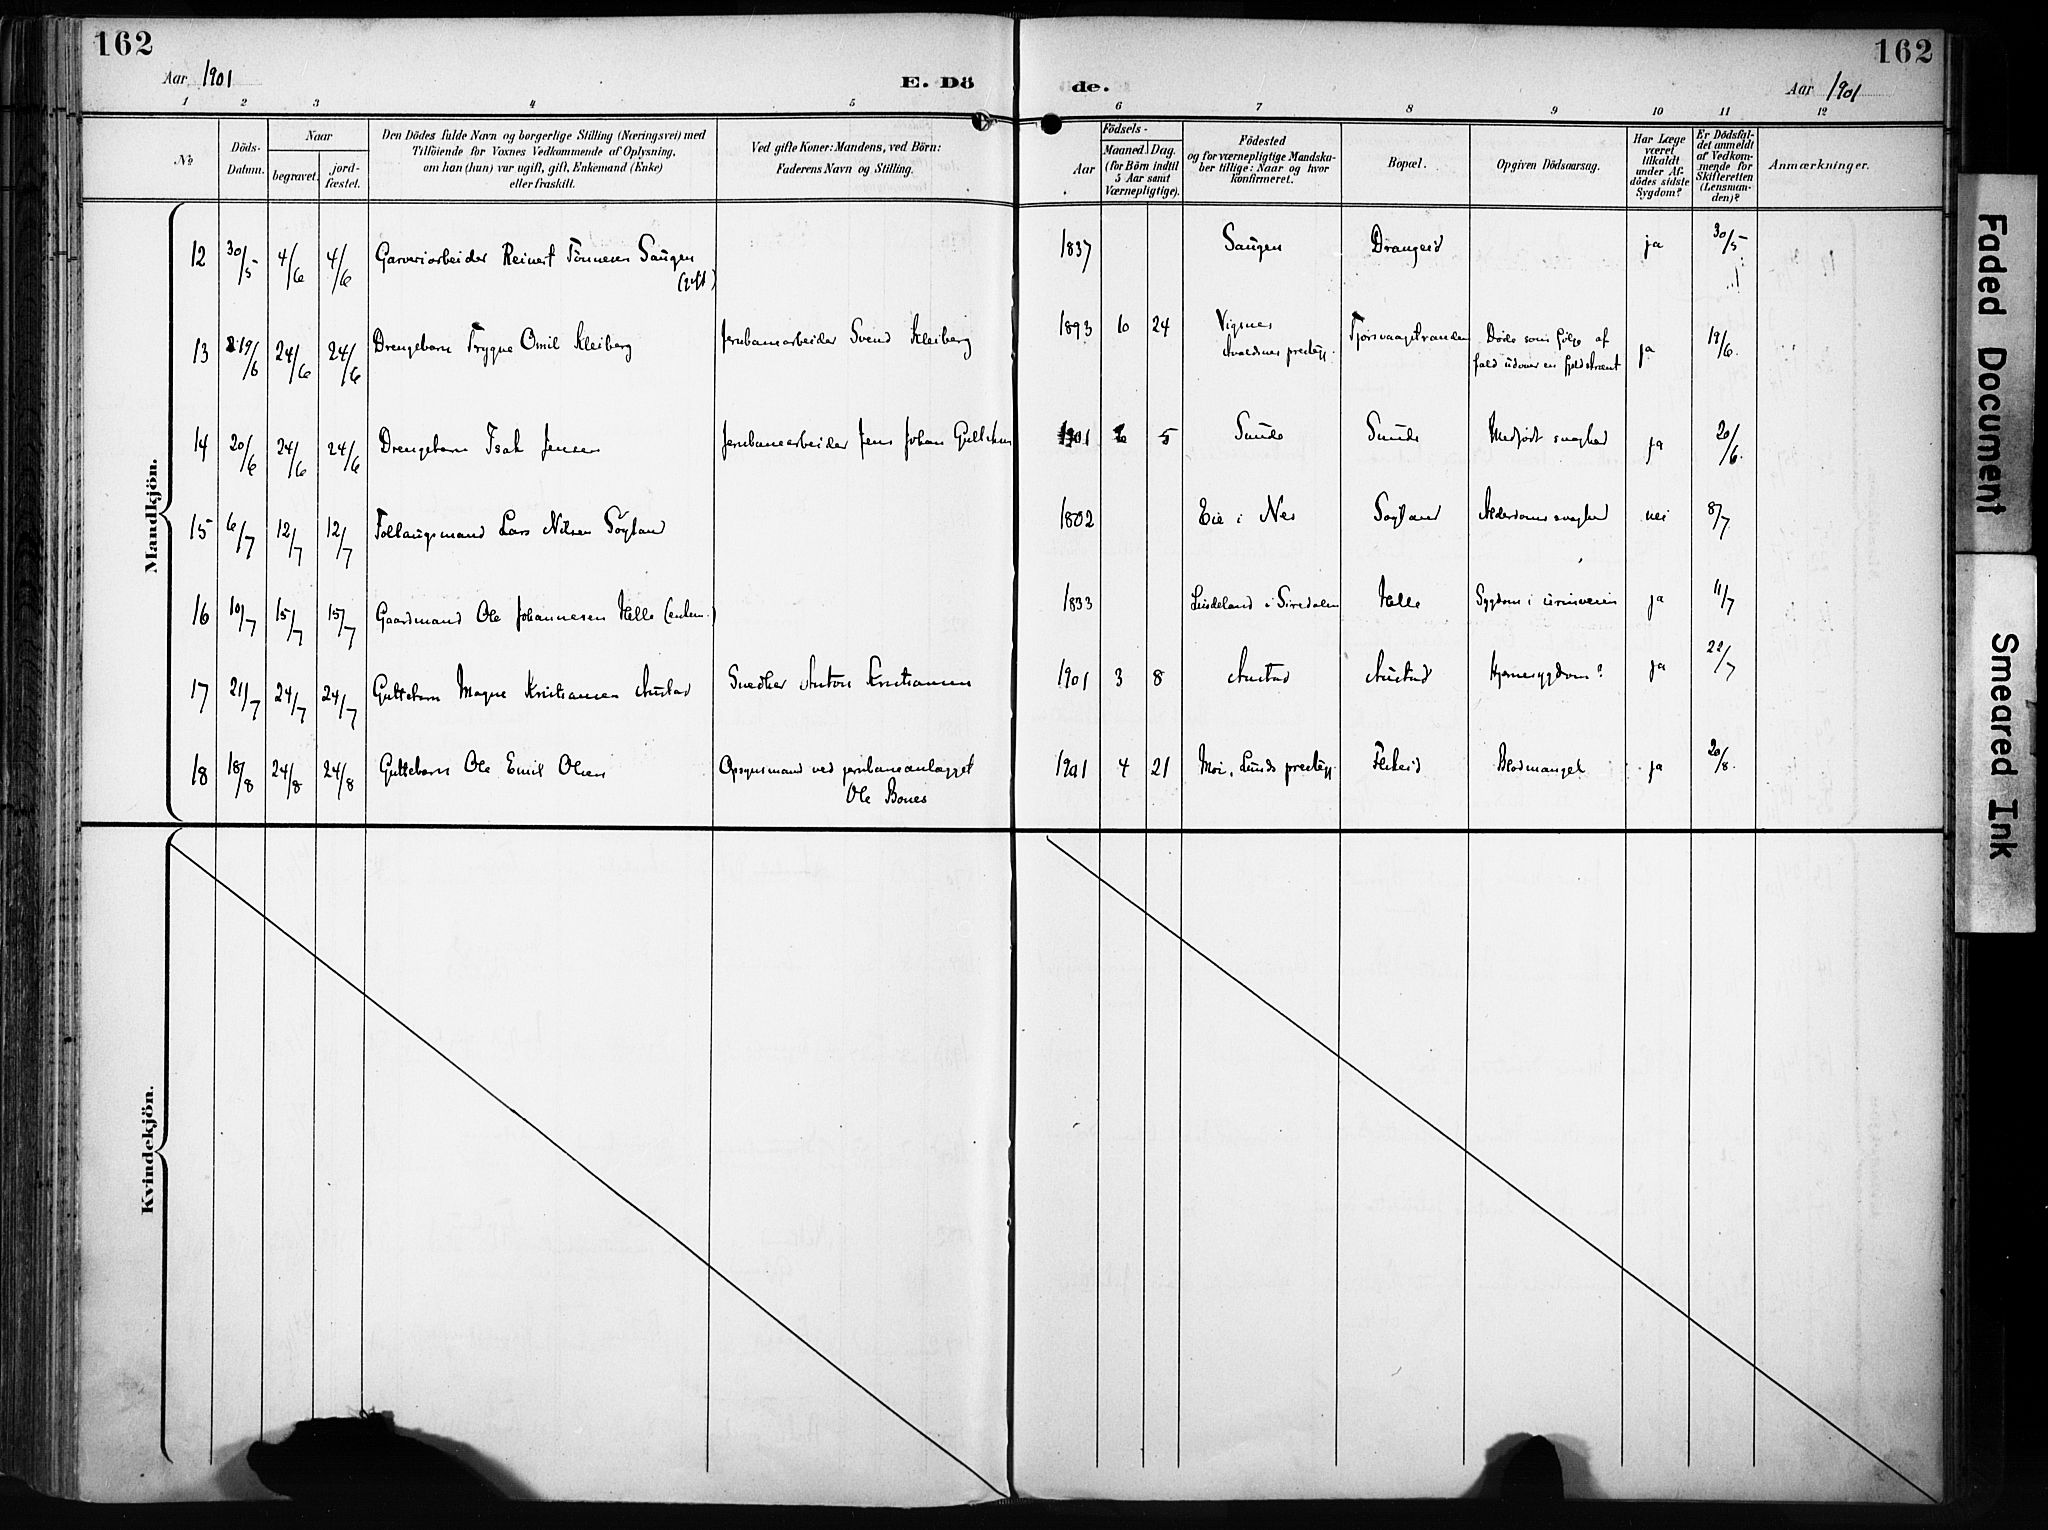 162
162
Aar 1901
E. Dö
de.
Aar 1901
1 2 3 4 5 6 7 8 9 10 11 12
No
Döds-
Datum.
Naar
begravet.
jord-
fæstet.
Den Dödes fulde Navn og borgerlige Stilling (Næringsvei) med
Tilföiende for Voxnes Vedkommende af Oplysning,
om han (hun) var ugift, gift, Enkemand (Enke)
eller fraskilt.
Ved gifte Koner: Mandens, ved Börn:
Faderens Navn og Stilling.
Födsels-
Aar
Maaned.
Dag.
(for Börn indtil
5 Aar samt
Værnepligtige).
Födested
og for værnepligtige Mandska-
ber tillige: Naar og hvor
konfirmeret.
Bopæl.
Opgiven Dödsaarsag.
Har Læge
været
tilkaldt
under Af-
dödes sidste
Sygdom?
Er Dödsfal-
det anmeldt
af Vedkom-
mende for
Skifteretten
(Lensman-
den)?
Anmærkninger.
Mandkjön.
12 30/5 4/6 4/6 Garveriarbeider Reinert Tönnesen Saugen 1837 Saugen Drangeid ja 30/5
(gift)
13 19/6 24/6 24/6 Drengebarn Trygve Omil Kleiberg Jernbanearbeider Svend Kleiberg 1893 10 24 Vigsnes Fjorsvaagstranden Döde som fölge af ja 19/6.
Avaldsnes prestegj. fald udover en fjeldskrænt
14 20/6 24/6 24/6 Drengebarn Isak Jensen Jernbanearbeider Jens Johan 1901 5 Sunde Sunde Medfödt svaghed ja 20/6.
15 6/7 12/7 12/7 Follaugsmand Lars Nilsen Sögland 1802 Eie i Nes Sogland Alderdomssvaghed nei 8/7
16 10/7 15/7 15/7 Gaardmand Ole Johannesen Helle (enkem.) 1833 Lindeland i Siredalen Helle Sygdom i urinveien ja 11/7
17 21/7 24/7 24/7 Guttebarn Magne Kristiansen Austad Snedker Anton Kristiansen 1901 3 8 Austad Austad Hjernesygdom? ja 22/7
18 18/8 24/8 24/8 Guttebarn Ole Emil Olsen Opsynsmand ved jernbaneanlægget 1901 4 21 Moi, Lunds prestegj. Flikeid Blodmangel ja 20/8.
Ole Bones
Kvindekjön.
Faded Document
Smeared Ink